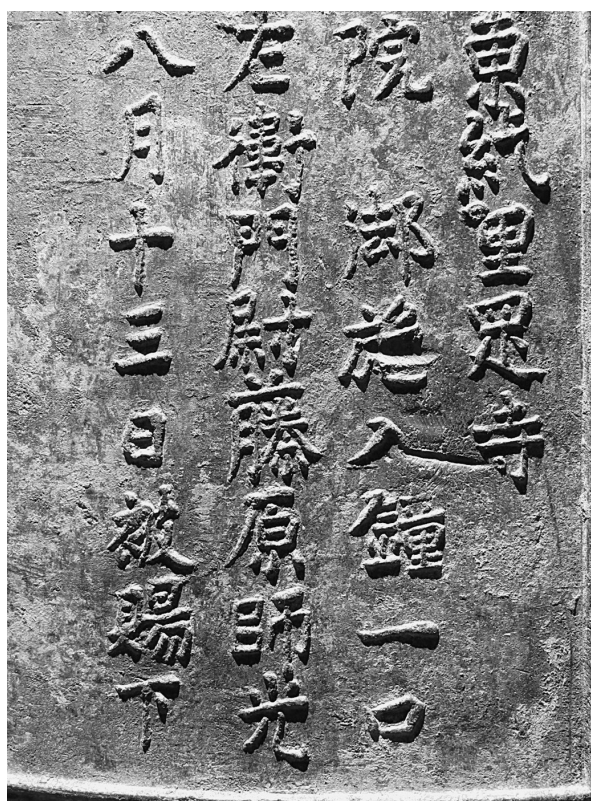 東 里 寺
院 御施入鐘一口
左衛門尉藤原師光
八月十三日被賜下